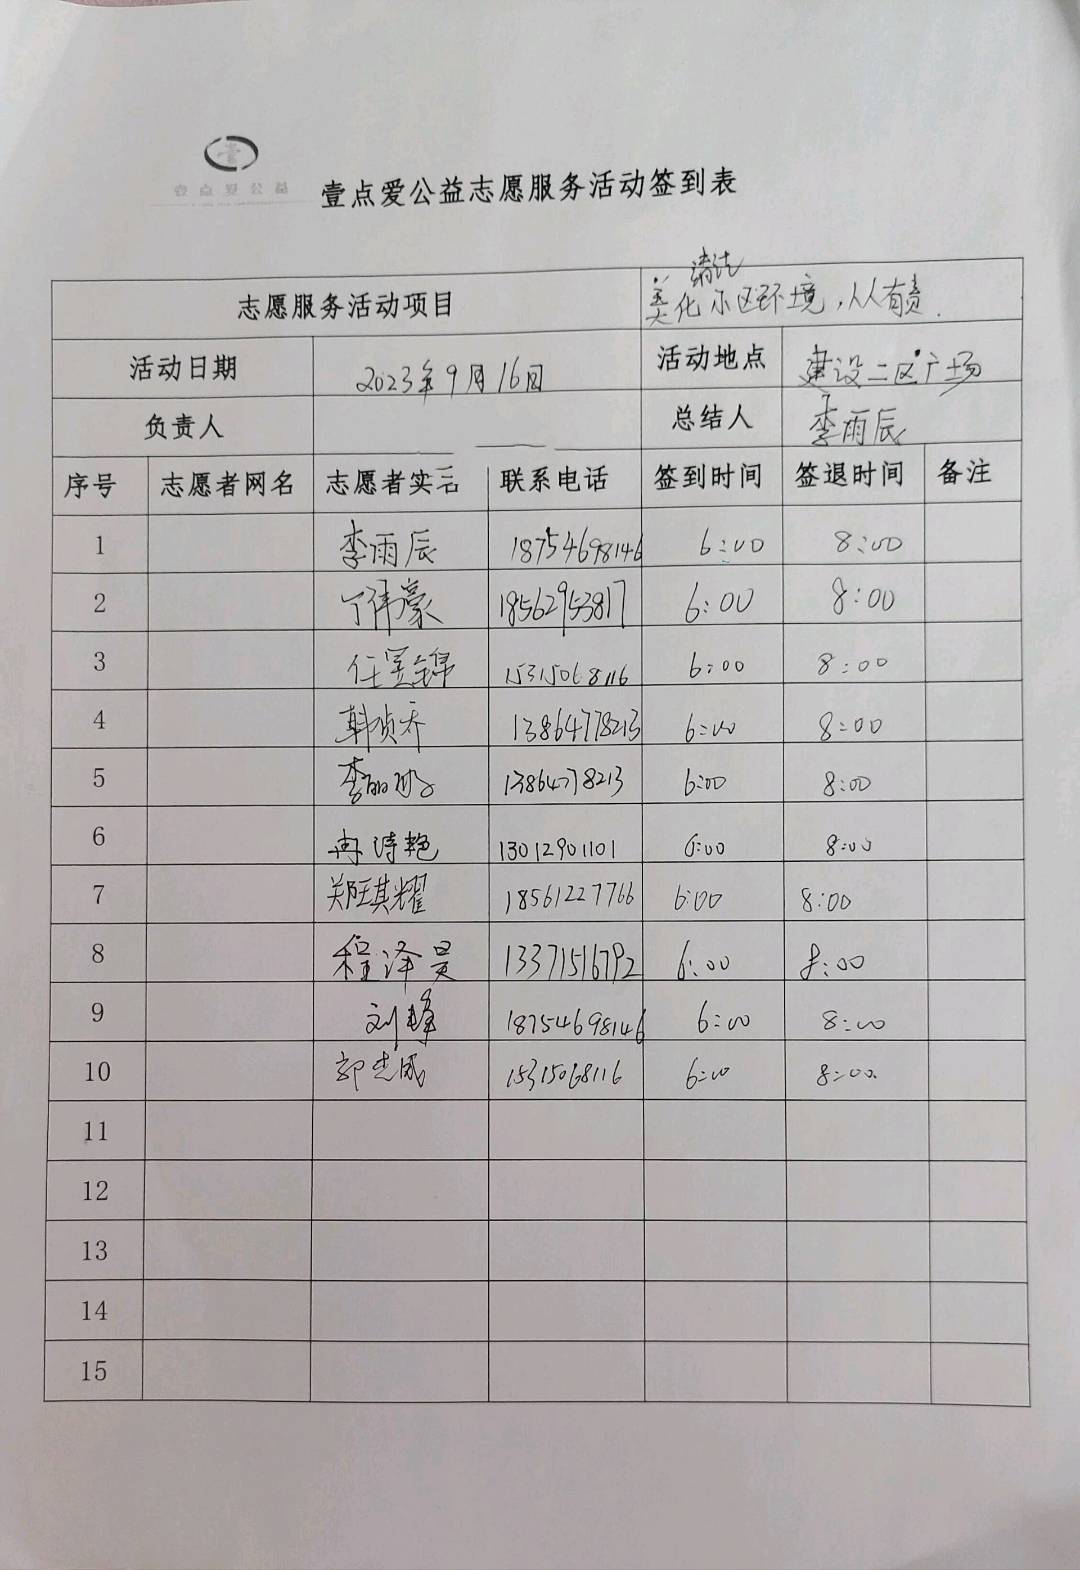 壹点爱公益
壹点爱公益志愿服务活动签到表
清洁
志愿服务活动项目 美化小区环境,人人有责.
活动日期 2023年9月16日 活动地点 建设二区广场
负责人 总结人 李雨辰
序号 志愿者网名 志愿者实名 联系电话 签到时间 签退时间 备注
1 李雨辰 18754698146 6:00 8:00
2 丁伟豪 18562953817 6:00 8:00
3 任昱锦 15315068116 6:00 8:00
4 韩侦乔 13864778213 6:00 8:00
5 李丽 13864778213 6:00 8:00
6 冉诗艳 13012901101 6:00 8:00
7 郑旺其耀 18561227766 6:00 8:00
8 程泽昊 13371516792 6:00 8:00
9 刘峰 18754698146 6:00 8:00
10 郭志成 15315068116 6:00 8:00.
11
12
13
14
15